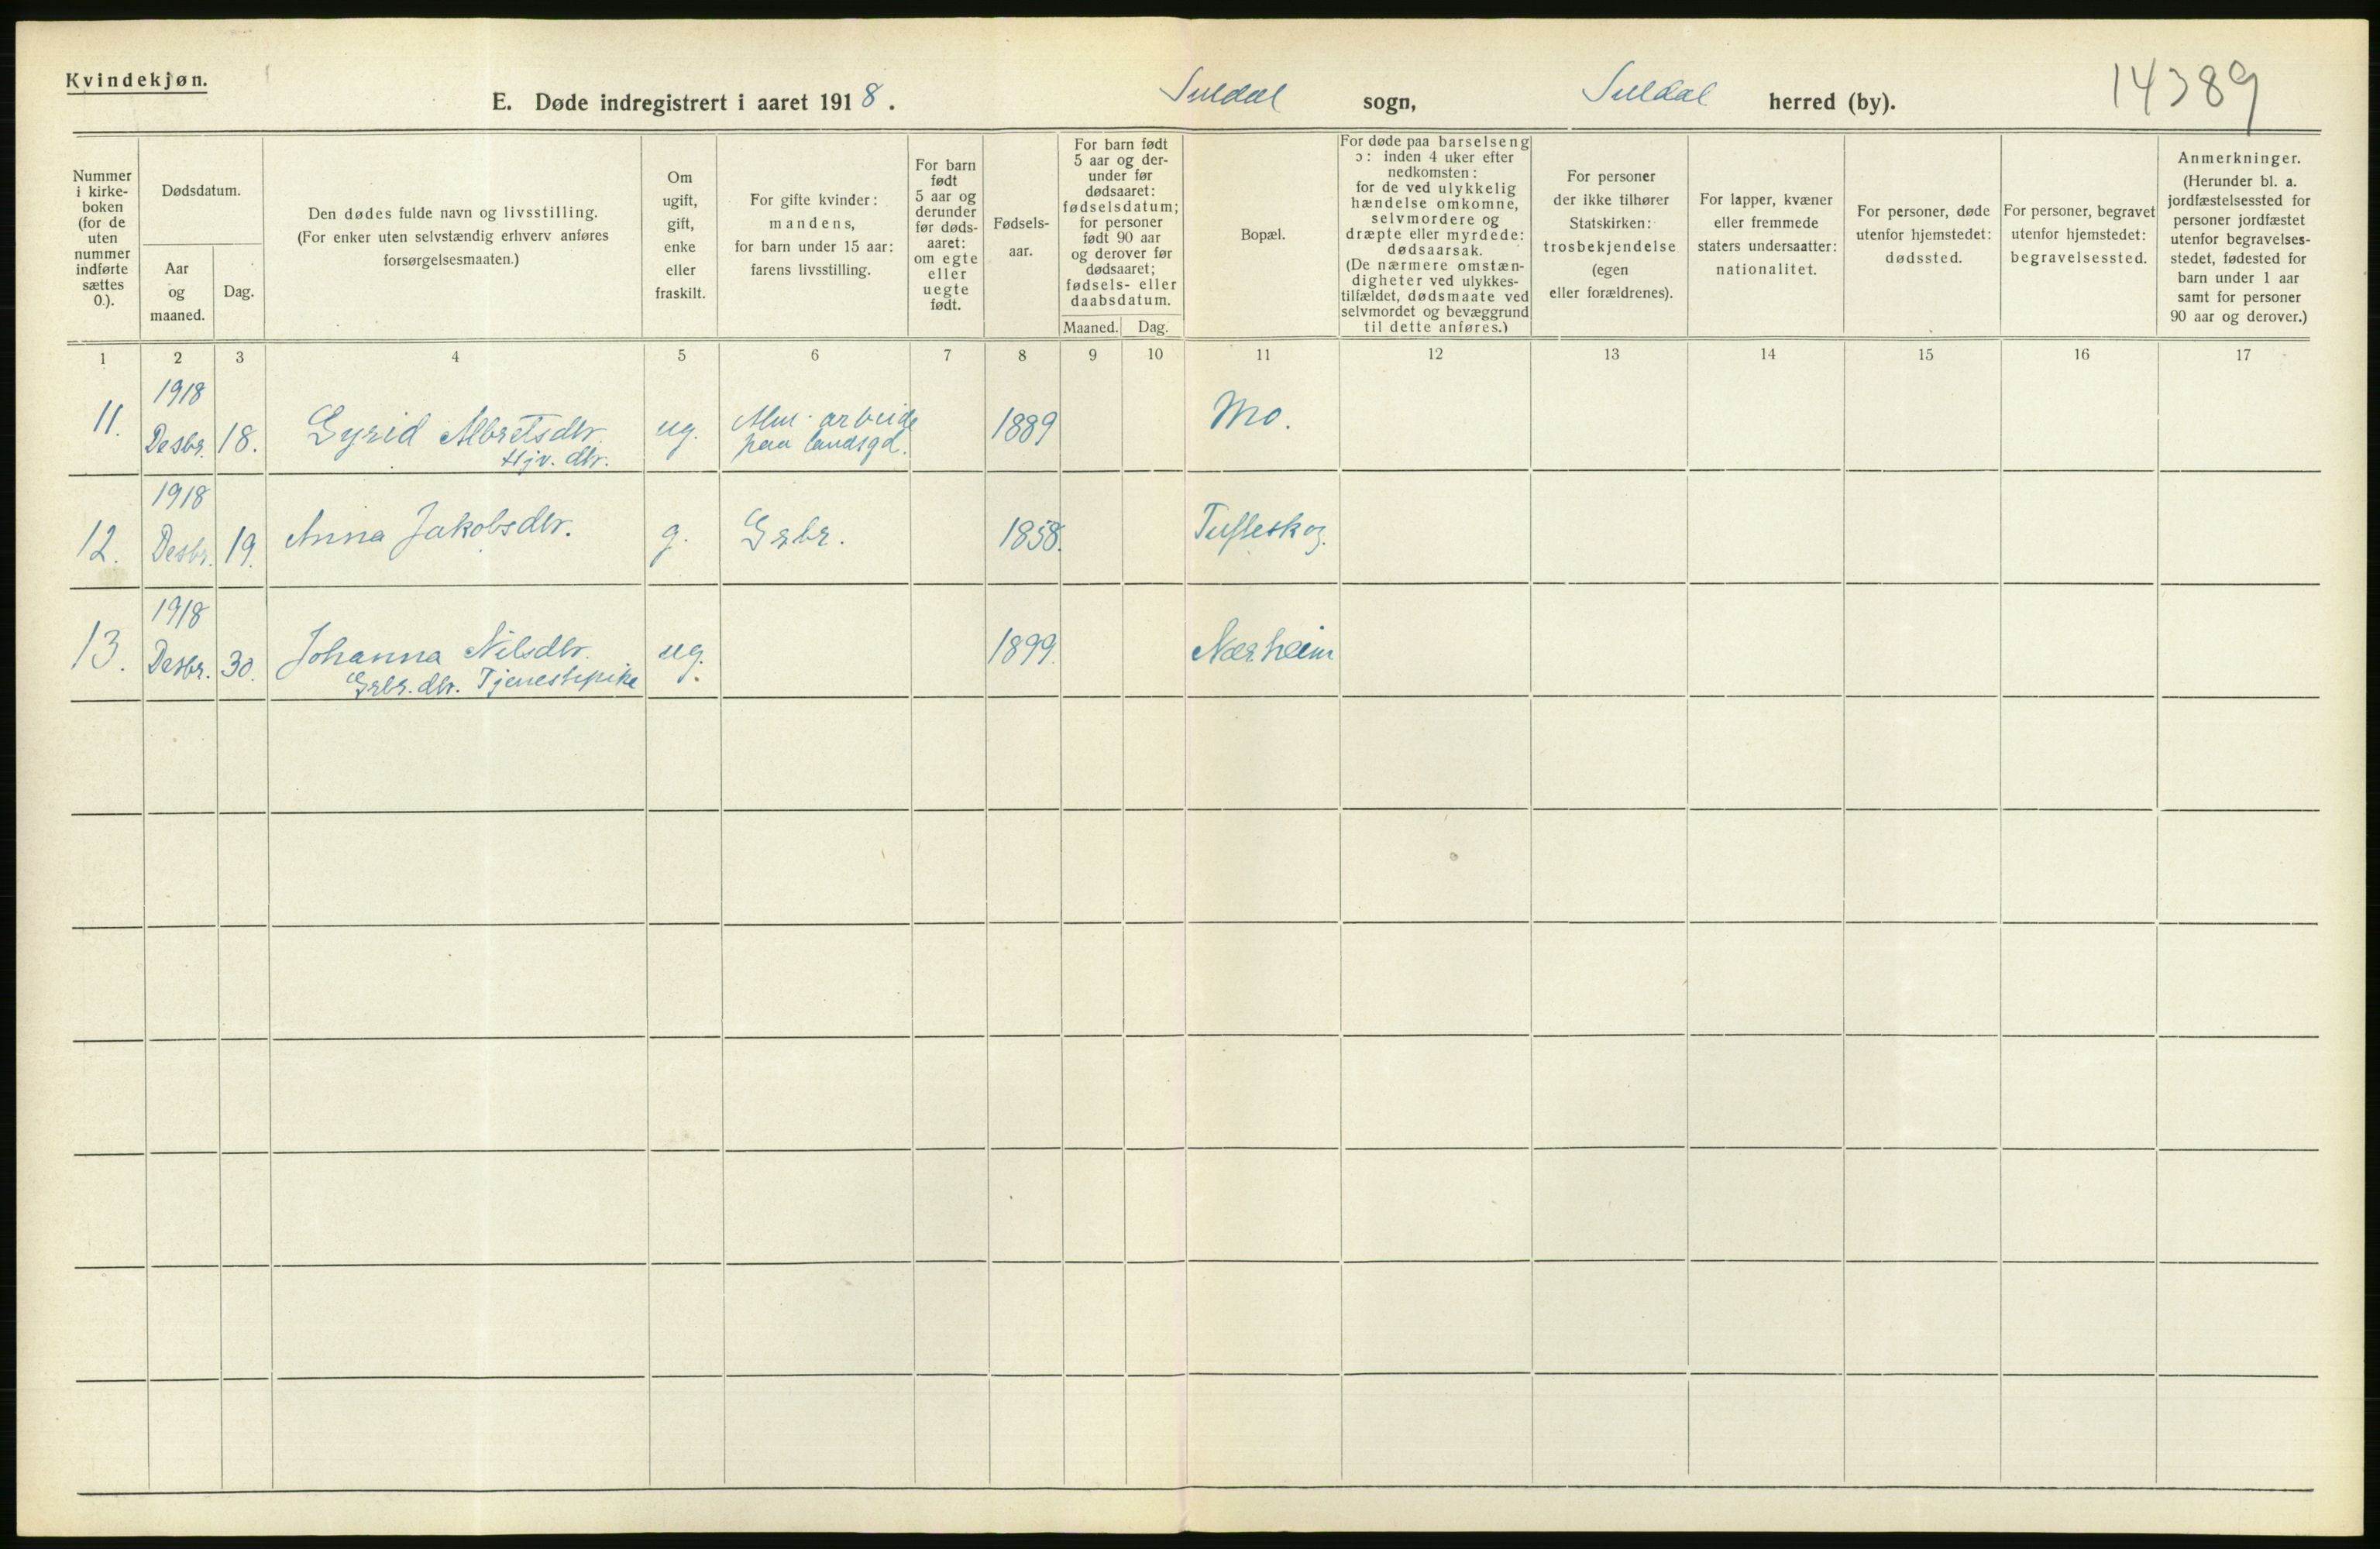 Kvindekjøn.
E. Døde indregistrert i aaret 1918.
Suldal sogn,
Suldal herred (by).
14389
Nummer
i kirke-
boken
(for de
uten
nummer
indførte
sættes
0.).
Dødsdatum.
Aar
og
maaned.
Dag.
Den dødes fulde navn og livsstilling.
(For enker uten selvstændig erhverv anføres
forsørgelsesmaaten.)
Om
ugift,
gift,
enke
eller
fraskilt.
For gifte kvinder:
mandens,
for barn under 15 aar:
farens livsstilling.
For barn
født
5 aar og
derunder
før døds-
aaret:
om egte
eller
uegte
født.
Fødsels-
aar.
For barn født
5 aar og der-
under før
dødsaaret:
fødselsdatum;
for personer
født 90 aar
og derover før
dødsaaret;
fødsels- eller
daabsdatum.
Maaned.
Dag.
Bopæl.
For døde paa barselseng
ɔ: inden 4 uker efter
nedkomsten:
for de ved ulykkelig
hændelse omkomne,
selvmordere og
dræpte eller myrdede:
dødsaarsak.
(De nærmere omstæn-
digheter ved ulykkes-
tilfældet, dødsmaate ved
selvmordet og bevæggrund
til dette anføres.)
For personer
der ikke tilhører
Statskirken:
trosbekjendelse
(egen
eller forældrenes).
For lapper, kvæner
eller fremmede
staters undersaatter:
nationalitet.
For personer, døde
utenfor hjemstedet:
dødssted.
For personer, begravet
utenfor hjemstedet:
begravelsessted.
Anmerkninger.
(Herunder bl. a.
jordfæstelsessted for
personer jordfæstet
utenfor begravelses-
stedet, fødested for
barn under 1 aar
samt for personer
90 aar og derover.)
1 2 3 4 5 6 7 8 9 10 11 12 13 14 15 16 17
1918
11. Desbr. 18. Gyrid Albretsdtr. ug. Alm. arbeide 1889 Mo.
Hjv. dtr. paa landsgd.
1918
12. Desbr. 19. Anna Jakobsdtr. g. Grbr. 1858. Tufteskog.
1918
13. Desbr. 30. Johanna Nilsdtr. ug. 1899. Nærheim
Grbr. dtr. Tjenestepike